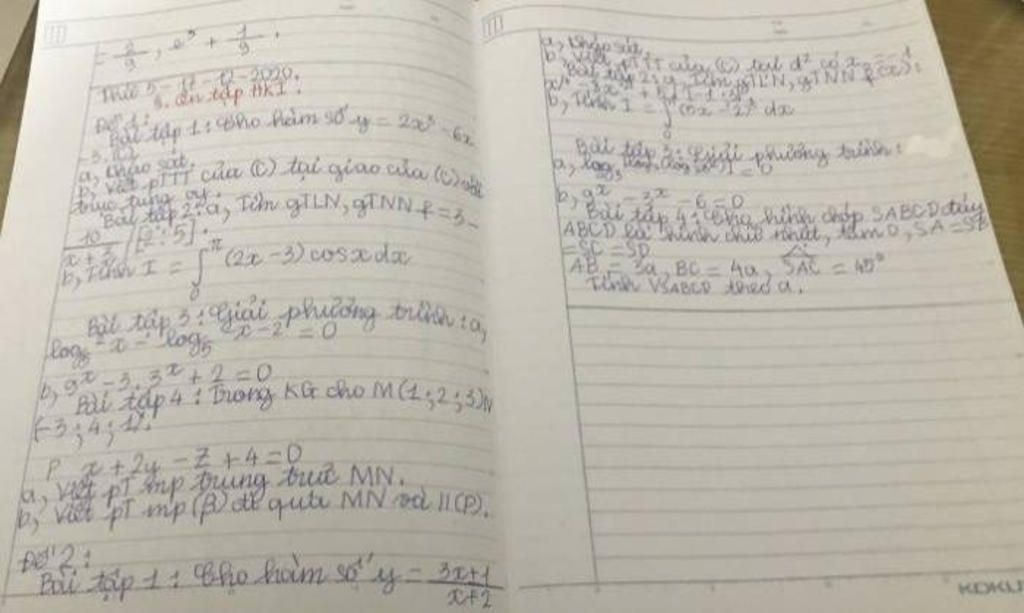 - 2/9, e³ + 1/9.
Thứ 5 - 17 - 12 - 2020.
3. ôn tập HKI.
Đề 1:
Bài tập 1: Cho hàm số y = 2x³ - 6x
a, khảo sát.
b, Viết pTTT của (C) tại giao của (C) với
trục tung oy.
Bài tập 2: a, Tìm gTLN, gTNN f = 3 -
10/(x+3) [2; 5].
b, Tính I = ∫₀^π (2x - 3) cosx dx
Bài tập 3: Giải phương trình: a,
log₅² x - log₅ x - 2 = 0
b, 9ˣ - 3. 3ˣ + 2 = 0
Bài tập 4: Trong KG cho M(1; 2; 3) N
(-3; 4; 1).
P x + 2y - z + 4 = 0
a, Viết pT mp trung trực MN.
b, Viết pT mp (β) đi qua MN và // (P).
Đề 2:
Bài tập 1: Cho hàm số y = (3x+1)/(x+2)
a, Khảo sát.
b, Viết pTTT của (C) tại đ² có x₀ = -1
Bài tập 2: a, Tìm gTLN, gTNN f(x):
b, Tính I = (5x - 2)³ dx
Bài tập 3: Giải phương trình:
a, log₃ = 0
b, 9ˣ - 3ˣ - 6 = 0
Bài tập 4: Cho hình chóp SABCD đáy
ABCD là hình chữ nhật, tâm O, SA = SB
= SC = SD
AB = 3a, BC = 4a, SAC = 45°
Tính VSABCD theo a.
KOKU